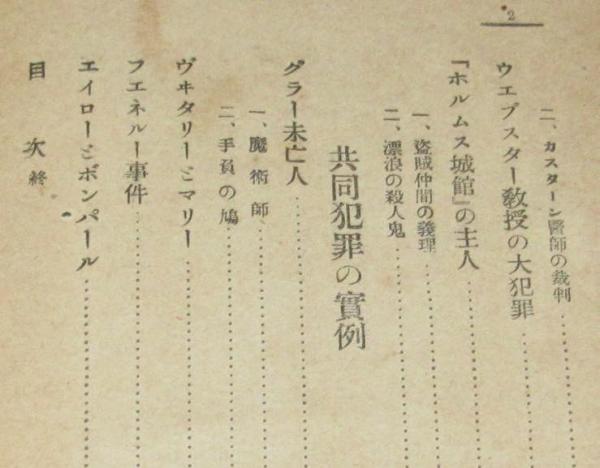 2
二、カスターン醫師の裁判
ウエブスター敎授の大犯罪
『ホルムス城館』の主人
一、盜賊仲間の義理
二、漂浪の殺人鬼
共同犯罪の實例
グラー未亡人
一、魔術師
二、手負の鳩
ヴヰタリーとマリー
フエネルー事件
エイローとボンパール
目次終